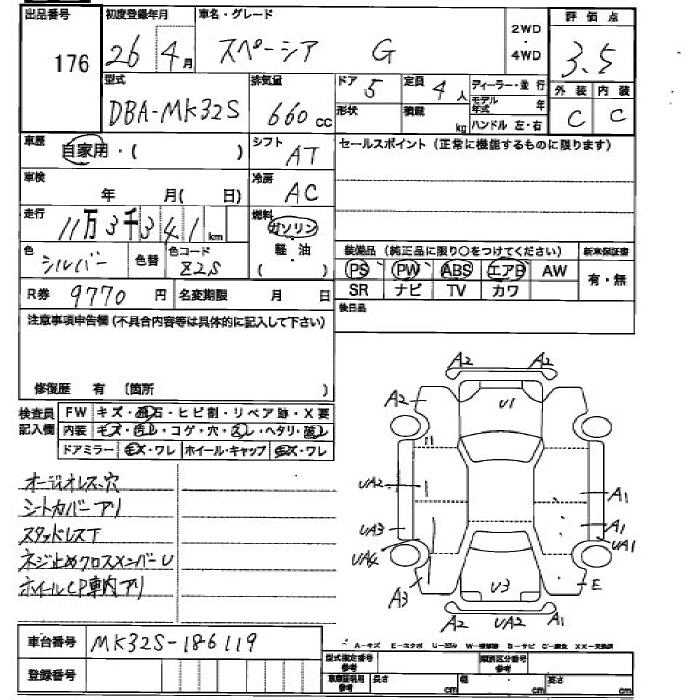 出品番号 初度登録年月 車名・グレード 2WD ・ 4WD 評価点
176 26年 4月 スペーシア G 3.5
型式 排気量 ドア 5 定員 4人 ディーラー・並行 外装 内装
DBA-MK32S 660cc 形状 積載 kg モデル年式 年 C C
ハンドル 左・右
車歴 自家用・( ) シフト AT セールスポイント (正常に機能するものに限ります)
車検 年 月( 日) 冷房 AC
走行 11万3千341km 燃料 ガソリン
軽・油
( )
色 シルバー 色替 色コード Z2S 装備品 (純正品に限り○をつけてください) 新車保証書
PS PW ABS エアB AW 有・無
SR ナビ TV カワ
R券 9770円 名変期限 月 日 後日品
注意事項申告欄 (不具合内容等は具体的に記入して下さい)
修復歴 有 (箇所 )
検査員記入欄 FW キズ・飛石・ヒビ割・リペア跡・X要
内装 キズ・汚レ・コゲ・穴・スレ・ヘタリ・破レ
ドアミラー キズ・ワレ ホイール・キャップ キズ・ワレ
オーディオレス、穴
シートカバーアリ
スタッドレスT
ネジ止めクロスメンバーU
ホイールCP車内アリ
A2 A2
A2 U1
UA2 A1
UA3 A1
UA4 UA1
A3 U3 E
A2 UA2 A1
車台番号 MK32S-186119
登録番号
A-キズ E-エクボ U-凹ミ W-補修跡 S-サビ C-腐食 XX-交換済
型式指定番号 参考 類別区分番号 参考
車庫証明用 参考 長さ cm 幅 cm 高さ cm